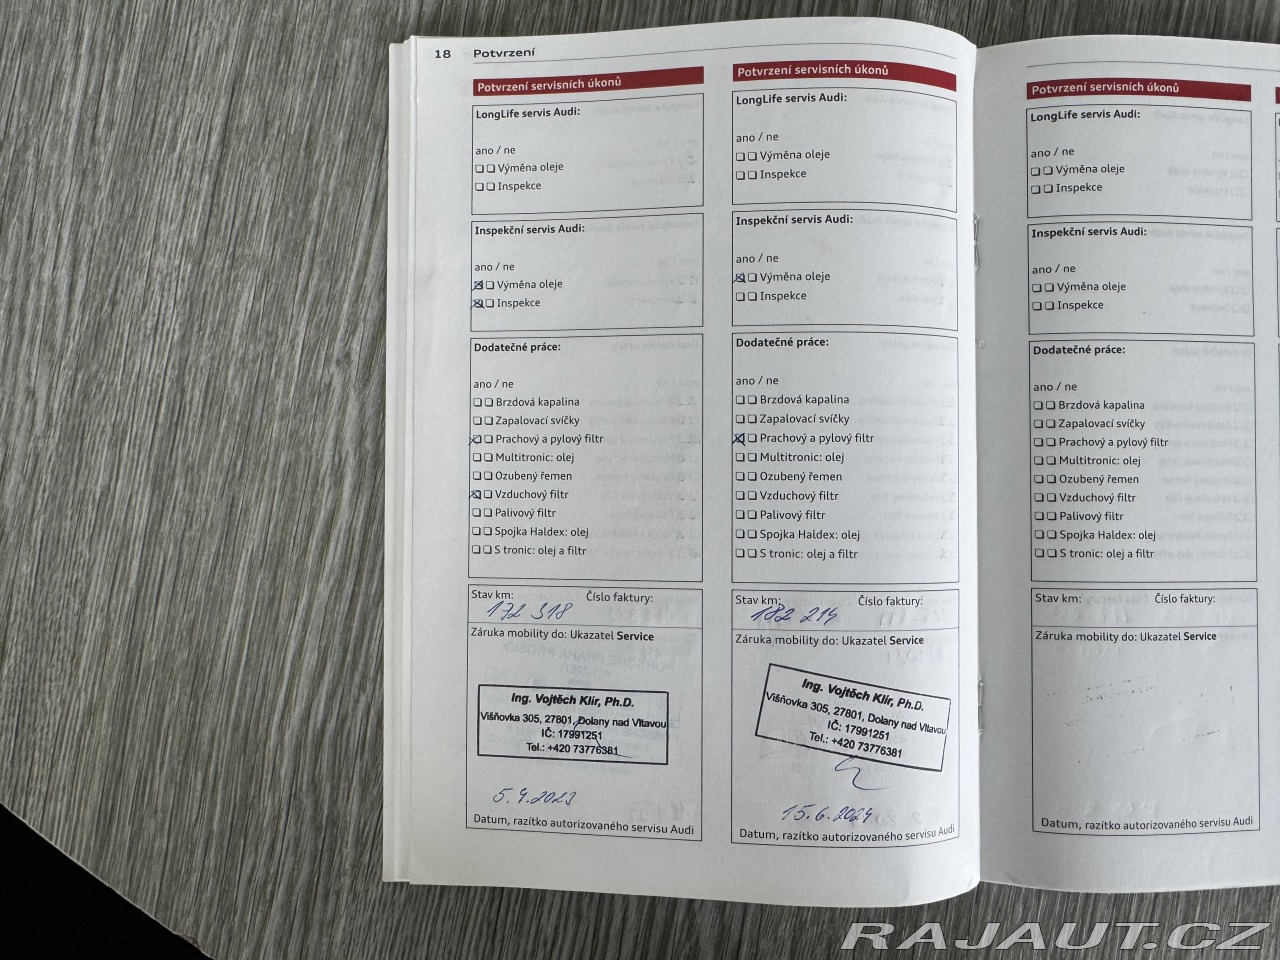 18 Potvrzení
Potvrzení servisních úkonů
LongLife servis Audi:
ano / ne
Výměna oleje
Inspekce
Inspekční servis Audi:
ano / ne
Výměna oleje
Inspekce
Dodatečné práce:
ano / ne
Brzdová kapalina
Zapalovací svíčky
Prachový a pylový filtr
Multitronic: olej
Ozubený řemen
Vzduchový filtr
Palivový filtr
Spojka Haldex: olej
S tronic: olej a filtr
Stav km: Číslo faktury:
172 318
Záruka mobility do: Ukazatel Service
Ing. Vojtěch Klír, Ph.D.
Višňovka 305, 27801, Dolany nad Vltavou
IČ: 17991251
Tel.: +420 73776381
5.4.2023
Datum, razítko autorizovaného servisu Audi
Potvrzení servisních úkonů
LongLife servis Audi:
ano / ne
Výměna oleje
Inspekce
Inspekční servis Audi:
ano / ne
Výměna oleje
Inspekce
Dodatečné práce:
ano / ne
Brzdová kapalina
Zapalovací svíčky
Prachový a pylový filtr
Multitronic: olej
Ozubený řemen
Vzduchový filtr
Palivový filtr
Spojka Haldex: olej
S tronic: olej a filtr
Stav km: Číslo faktury:
182 214
Záruka mobility do: Ukazatel Service
Ing. Vojtěch Klír, Ph.D.
Višňovka 305, 27801, Dolany nad Vltavou
IČ: 17991251
Tel.: +420 73776381
15.6.2024
Datum, razítko autorizovaného servisu Audi
Potvrzení servisních úkonů
LongLife servis Audi:
ano / ne
Výměna oleje
Inspekce
Inspekční servis Audi:
ano / ne
Výměna oleje
Inspekce
Dodatečné práce:
ano / ne
Brzdová kapalina
Zapalovací svíčky
Prachový a pylový filtr
Multitronic: olej
Ozubený řemen
Vzduchový filtr
Palivový filtr
Spojka Haldex: olej
S tronic: olej a filtr
Stav km: Číslo faktury:
Záruka mobility do: Ukazatel Service
Datum, razítko autorizovaného servisu Audi
RAJAUT.CZ